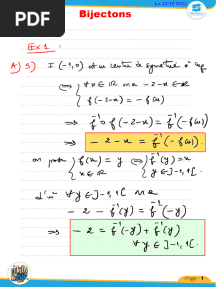 PDF
Le 21/10/2022
Bijectons
Ex 1 :
A) 5) I(-1,0) est un centre de symétrie à Cf
⟺ { ∀x ∈ ℝ on a -2-x ∈ ℝ
f(-2-x) = -f(x)
⟹ f⁻¹∘f(-2-x) = f⁻¹(-f(x))
⟹ -2-x = f⁻¹(-f(x)).
on pose { f(x) = y ⟺ { f⁻¹(y) = x
x ∈ ℝ y ∈ ]-1,1[
d'où ∀y ∈ ]-1,1[ on a
-2 - f⁻¹(y) = f⁻¹(-y)
⟹ -2 = f⁻¹(-y) + f⁻¹(y)
∀y ∈ ]-1,1[.
Page - 1